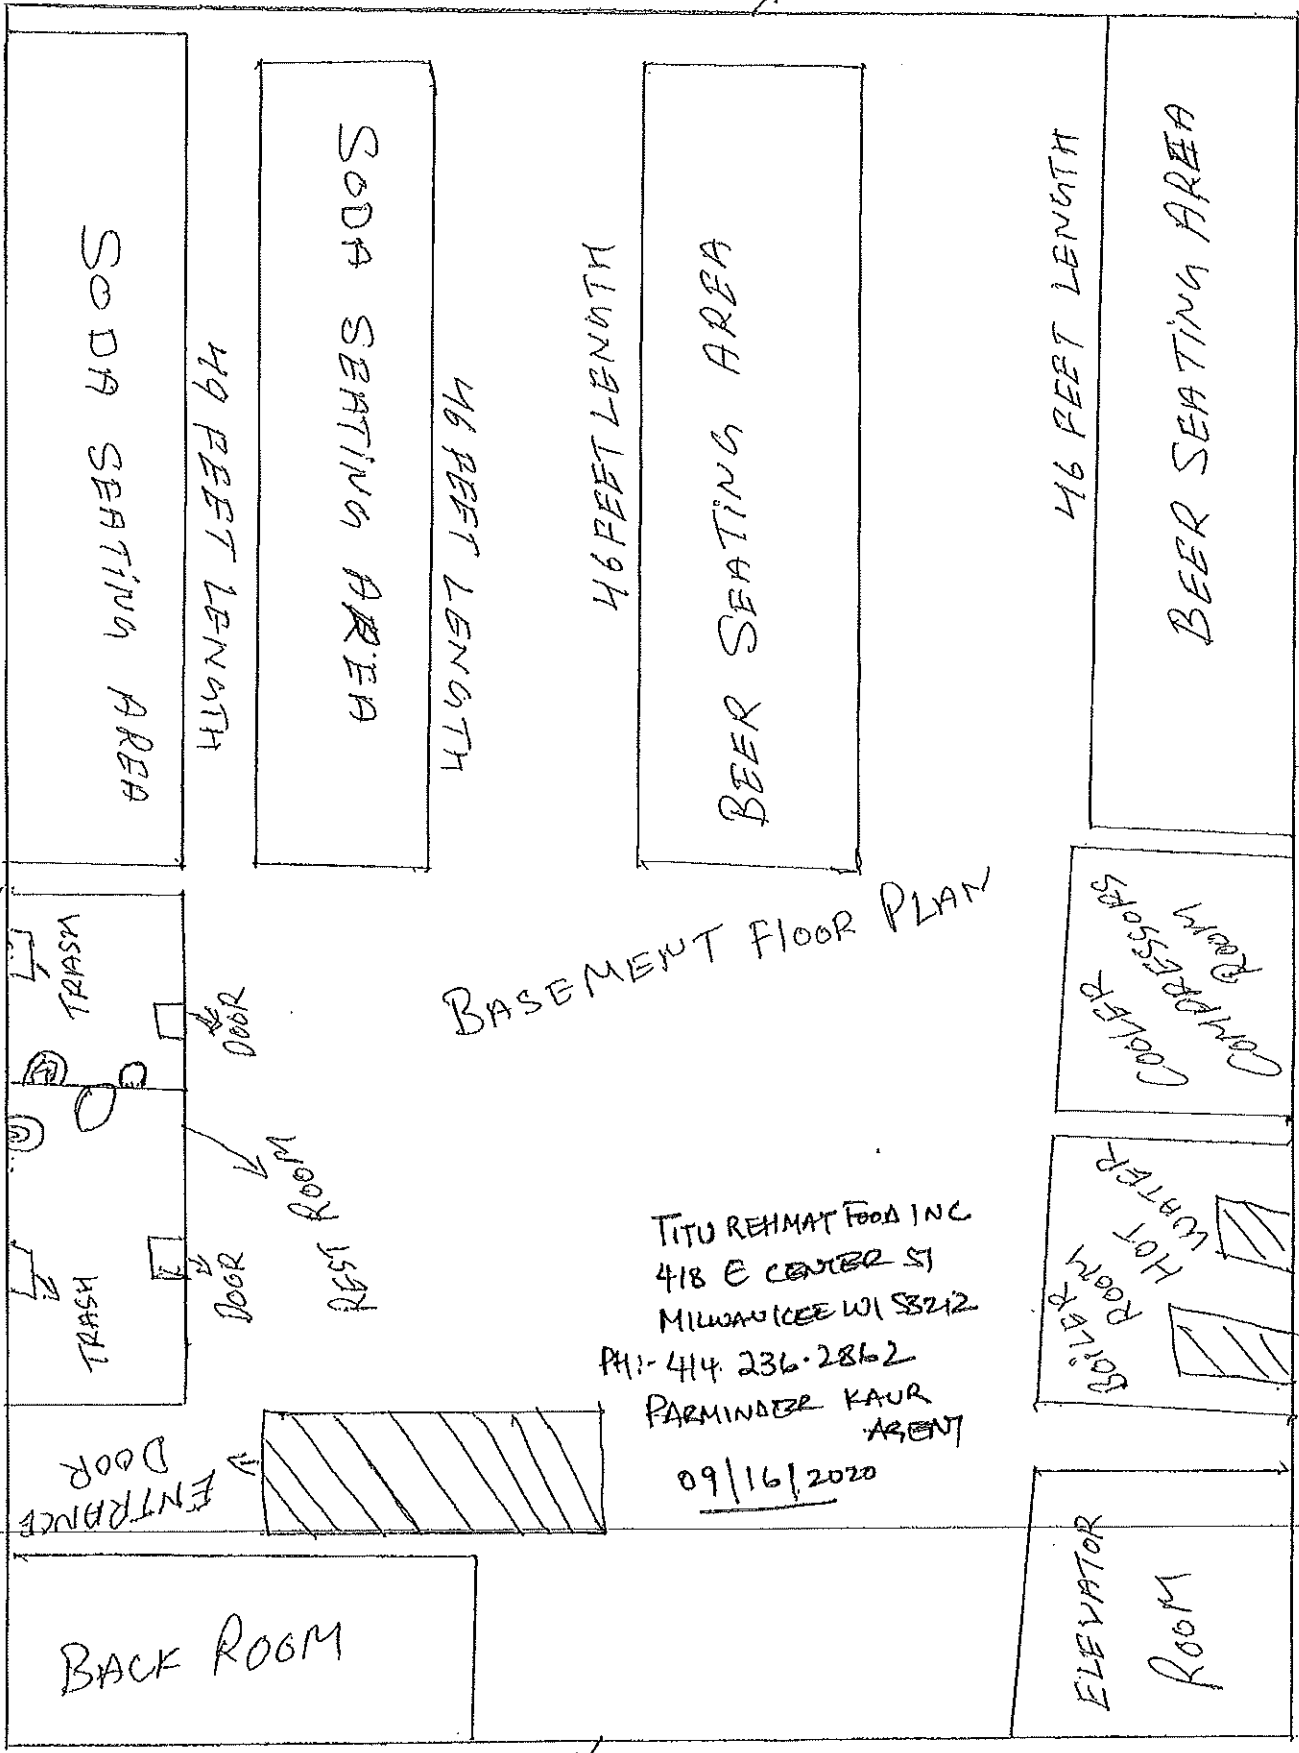 SODA SEATING AREA
49 FEET LENGTH
SODA SEATING AREA
46 FEET LENGTH
46 FEET LENGTH
BEER SEATING AREA
46 FEET LENGTH
BEER SEATING AREA
BASEMENT FLOOR PLAN
COOLER
COMPRESSORS
ROOM
TRASH
DOOR
REST ROOM
TRASH
DOOR
BOILER
ROOM
HOT
WATER
TITU REHMAT FOOD INC
418 E CENTER ST
MILWAUKEE WI 53212
PH:- 414.236.2862
PARMINDER KAUR
AGENT
09/16/2020
ENTRANCE
DOOR
BACK ROOM
ELEVATOR
ROOM